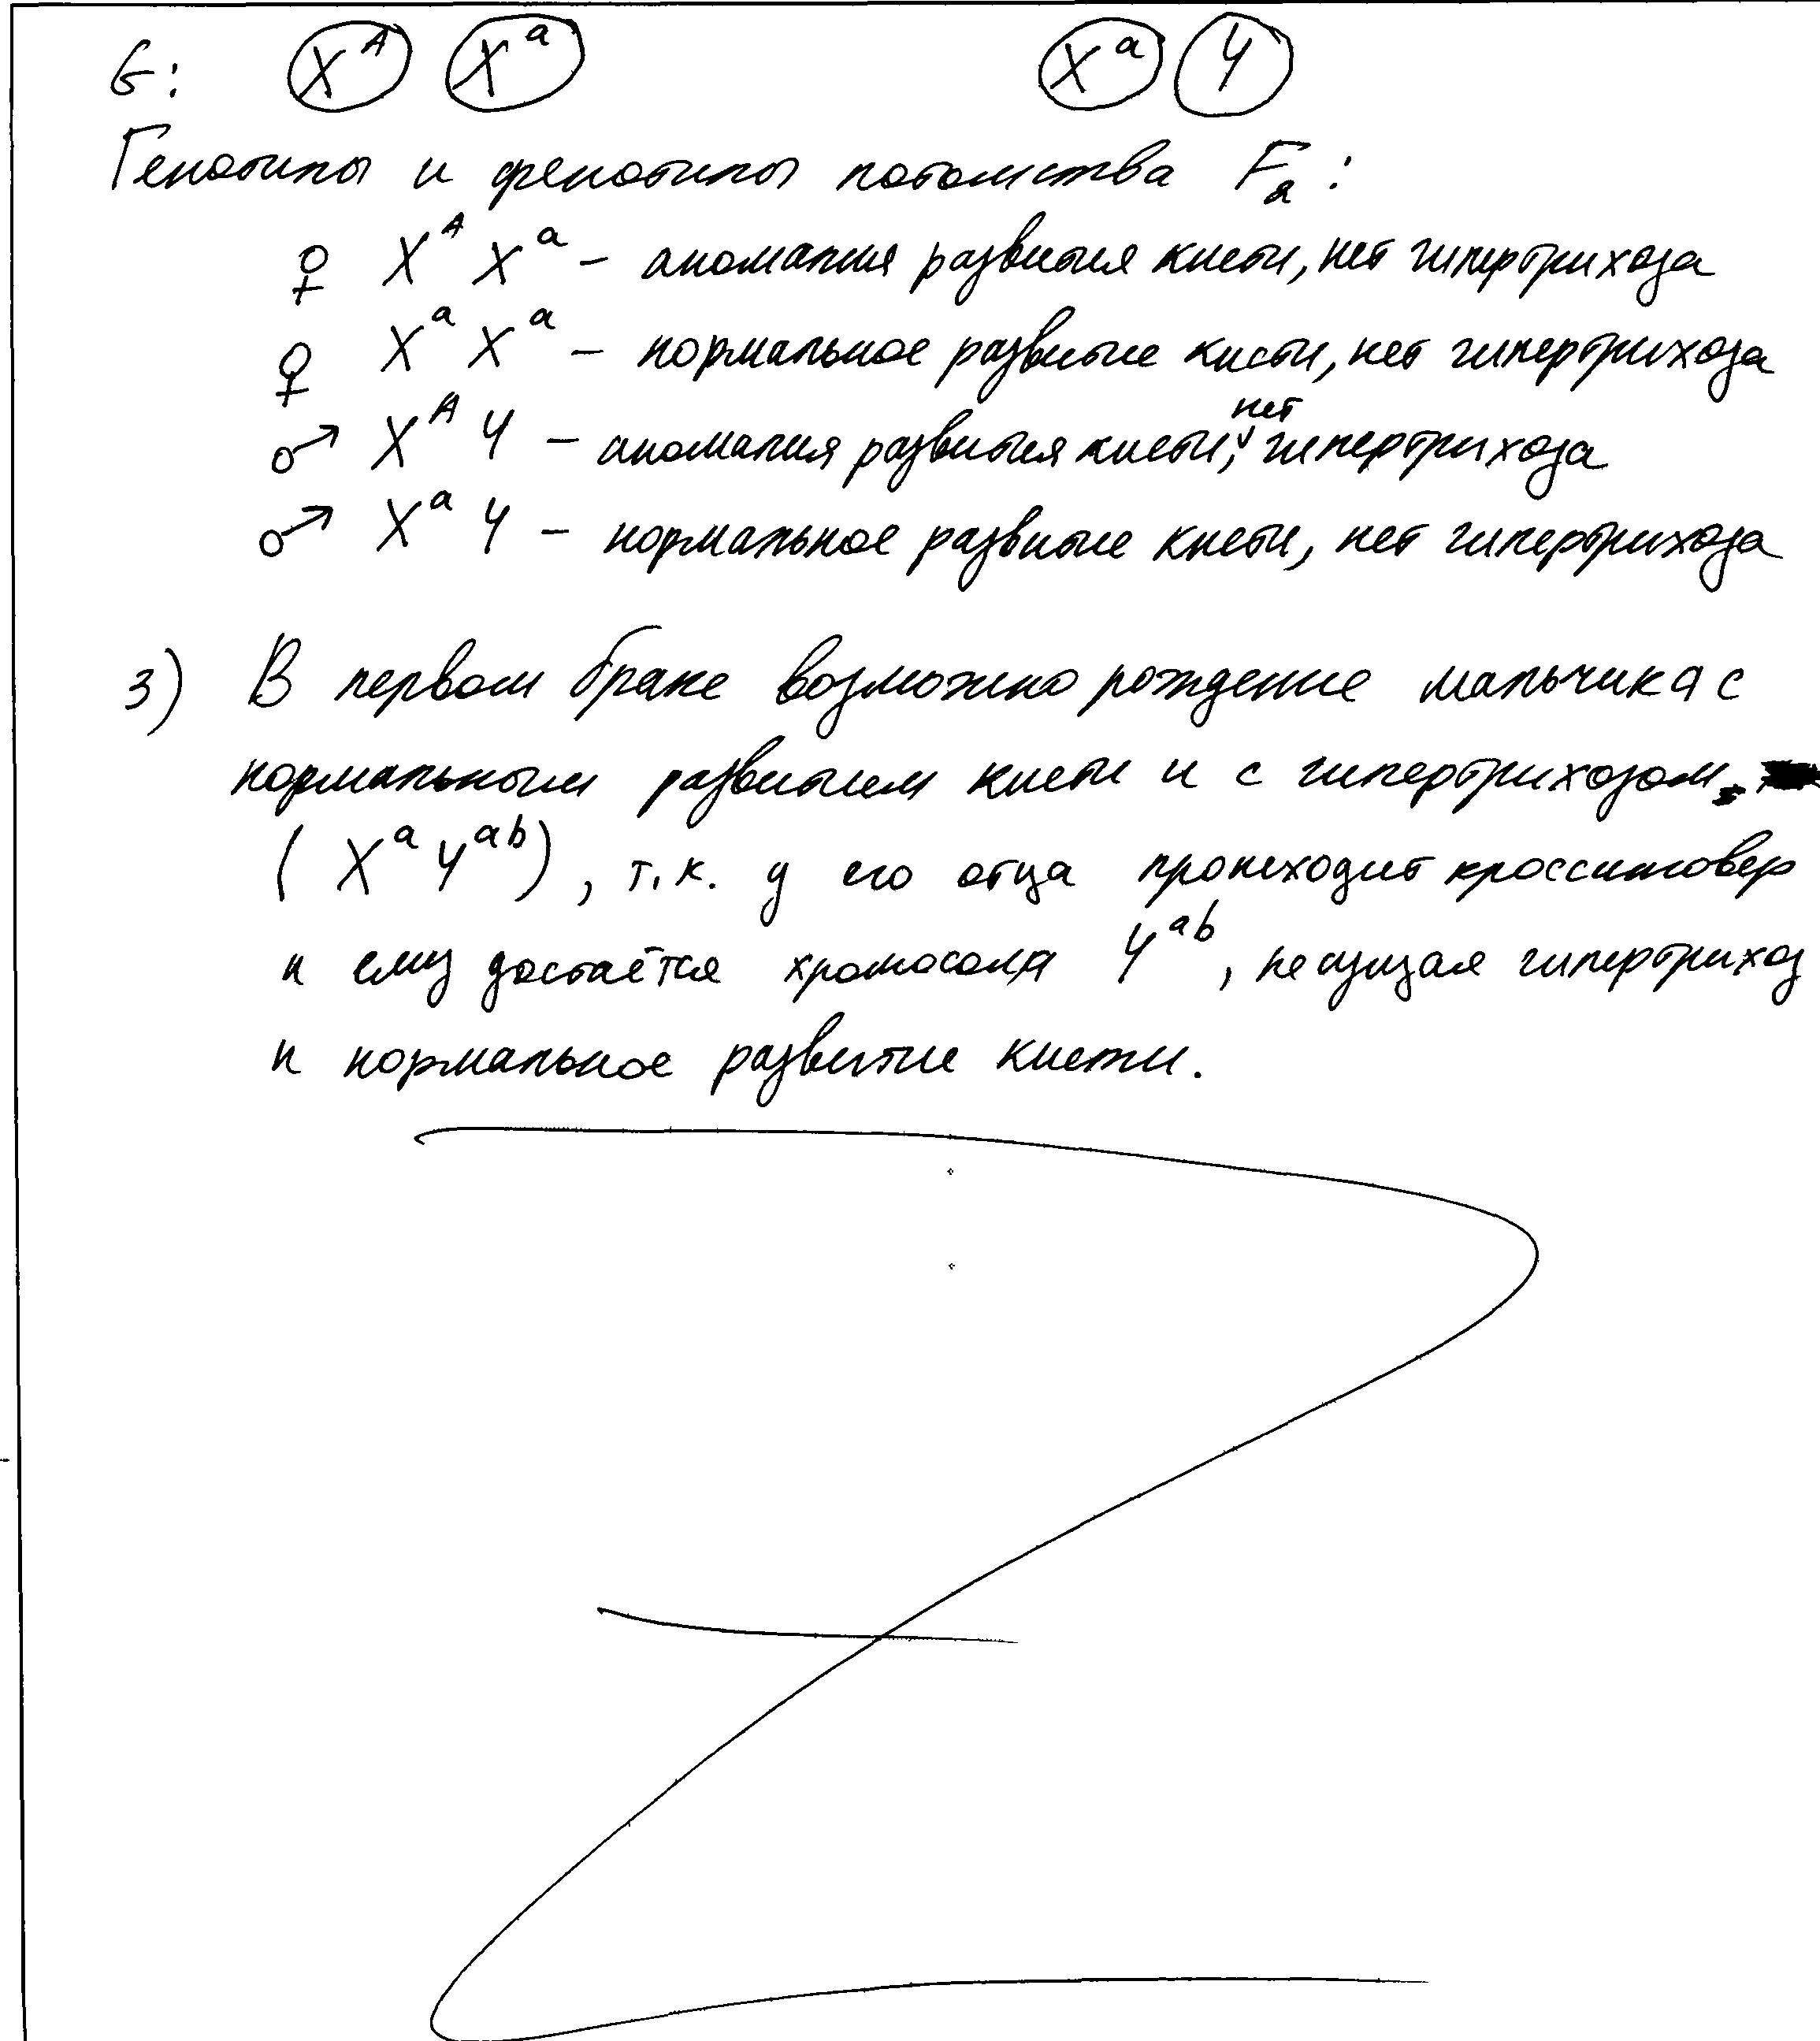 G: X^A X^a X^a Y
Генотипы и фенотипы потомства F₂:
♀ X^A X^a – аномалия развития кисти, нет гипертрихоза
♀ X^a X^a – нормальное развитие кисти, нет гипертрихоза
♂ X^A Y – аномалия развития кисти, нет гипертрихоза
♂ X^a Y – нормальное развитие кисти, нет гипертрихоза
3) В первом браке возможно рождение мальчика с
нормальным развитием кисти и с гипертрихозом.
(X^a Y^ab), т.к. у его отца происходит кроссинговер
и ему достаётся хромосома Y^ab, несущая гипертрихоз
и нормальное развитие кисти.